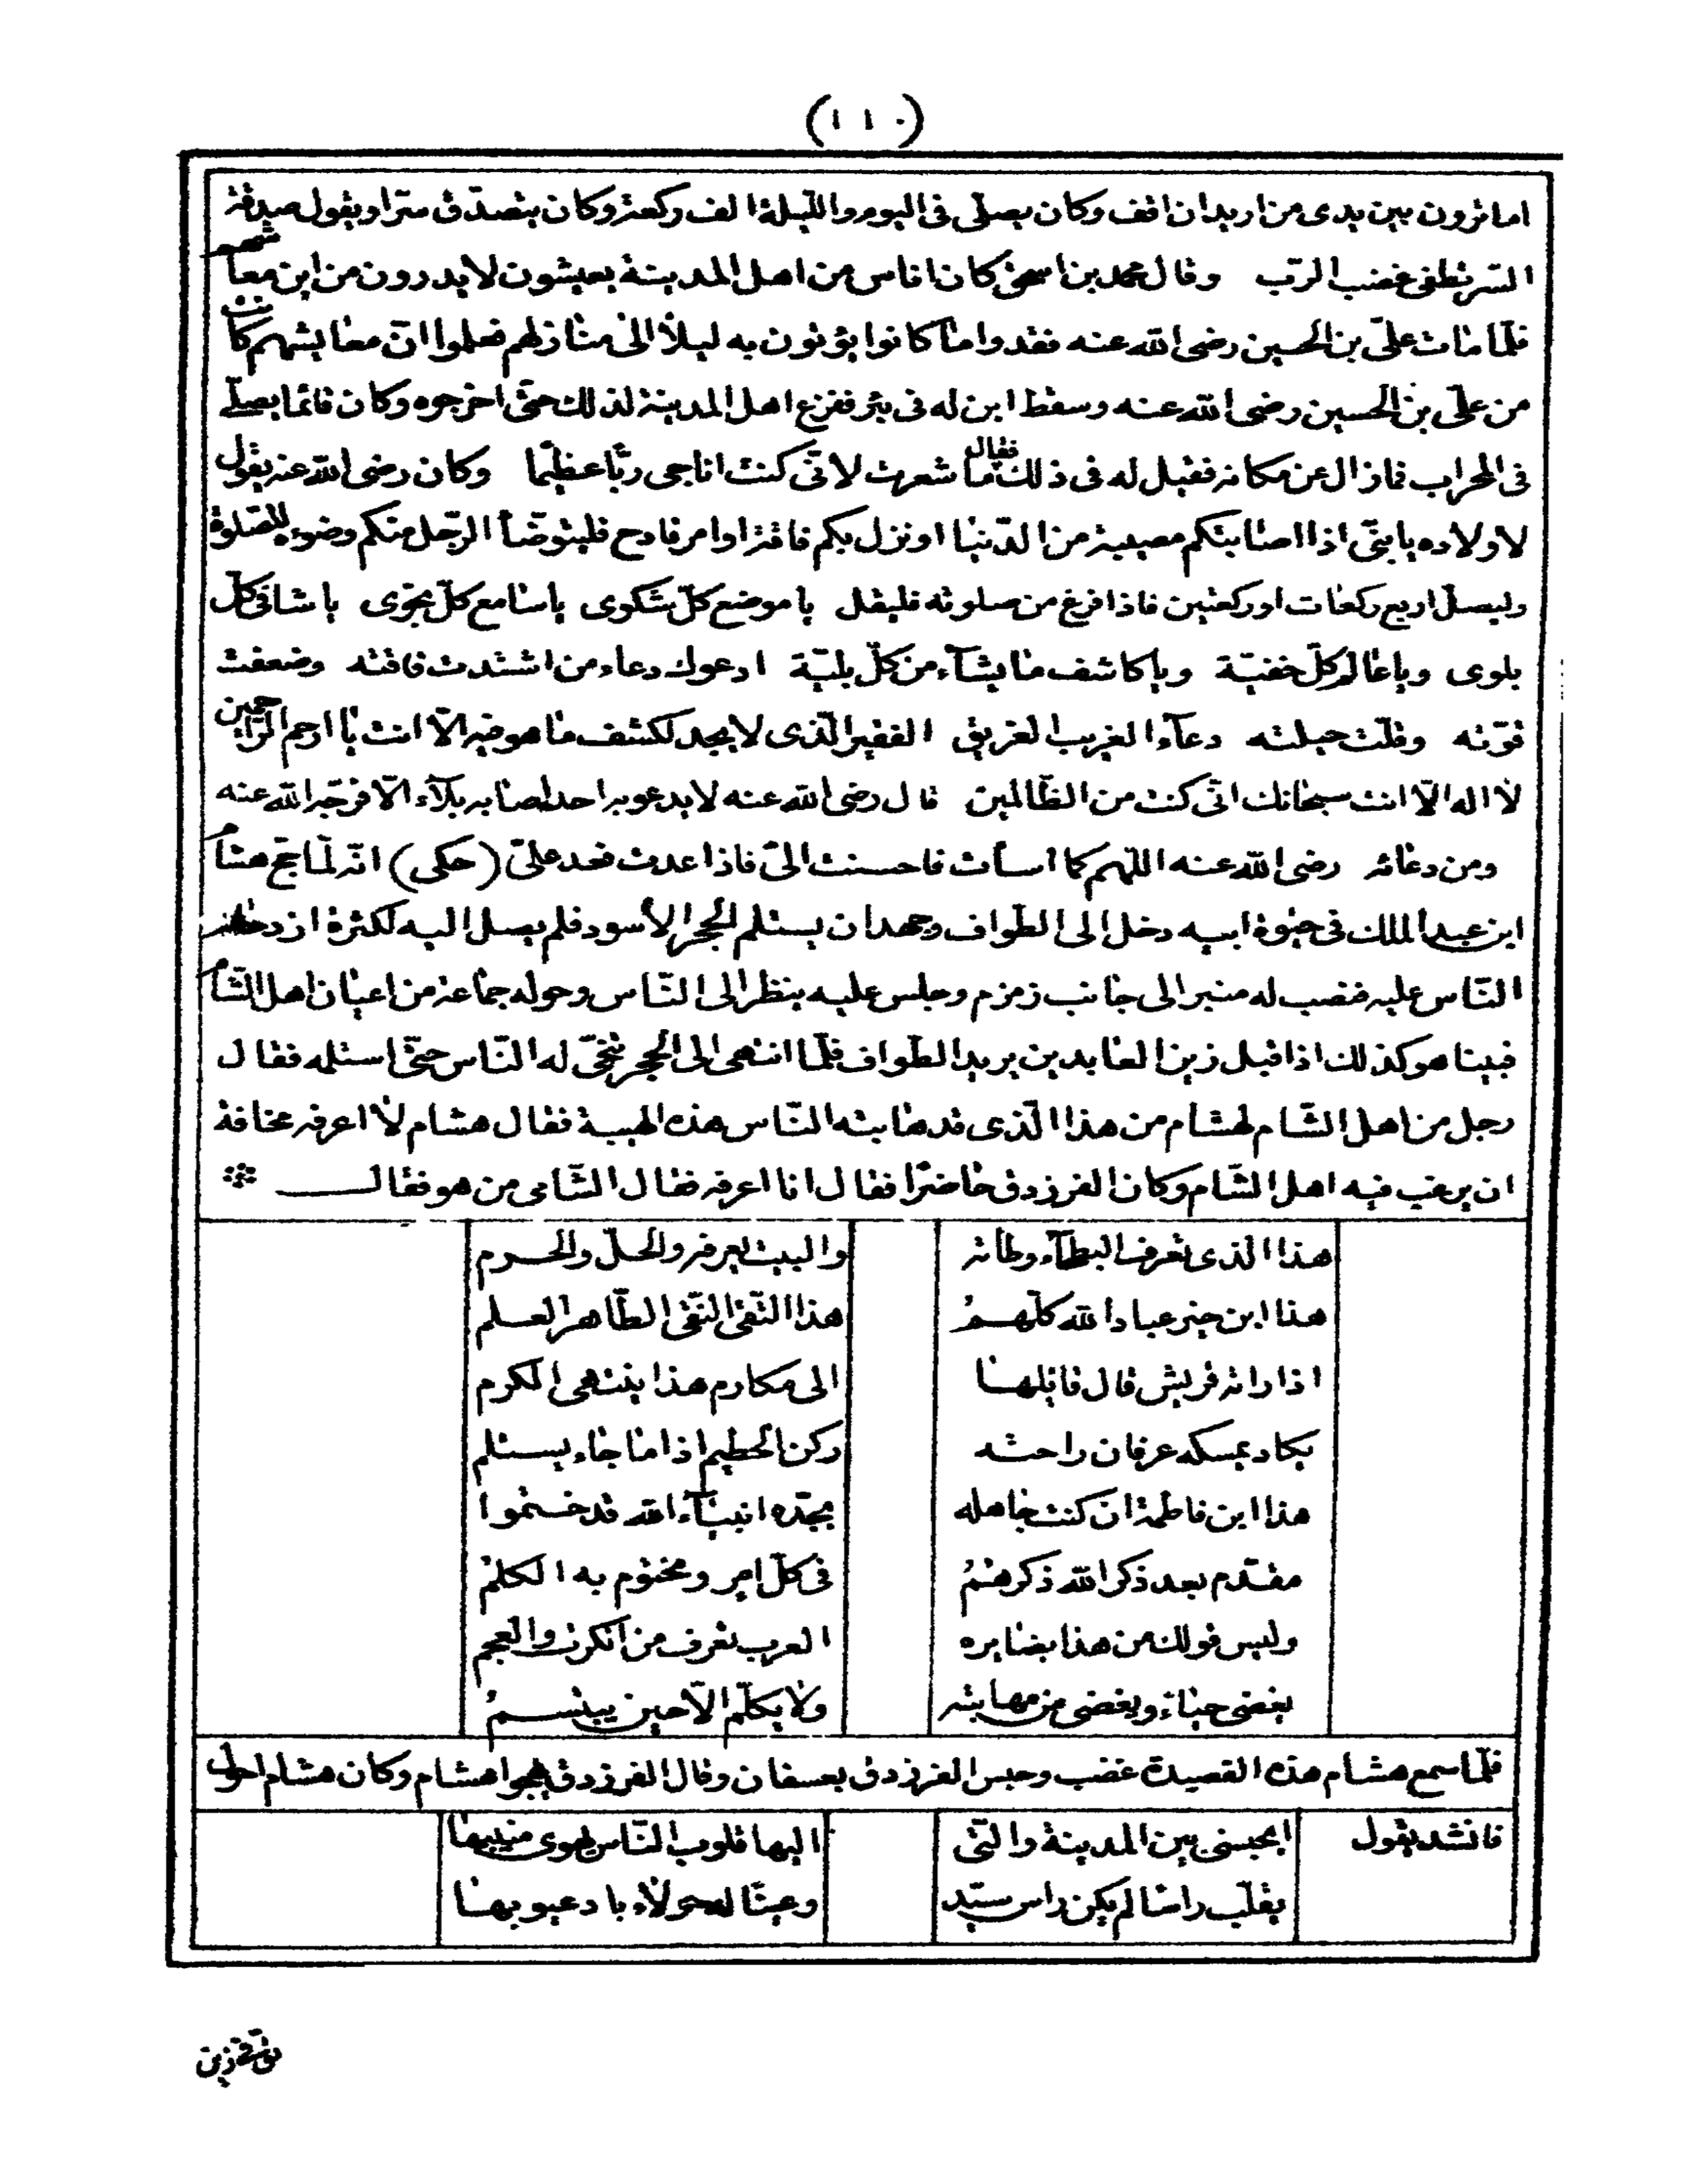 (١١٠)
اما ترون بين يدى من اريد ان اقف وكان يصلّى فى اليوم والليلة الف ركعة وكان يتصدّق سرّا ويقول صدقة
السّر تطفئ غضب الرّب وقال محمد بن اسحق كان اناس من اهل المدينة يعيشون لا يدرون من اين معاشهم
فلمّا مات علىّ بن الحسين رضى اللّه عنه فقدوا ما كانوا يؤتون به ليلاً الى منازلهم فعلموا انّ معايشهم كانت
من علىّ بن الحسين رضى اللّه عنه وسقط ابن له فى بئر ففزع اهل المدينة لذلك حتّى اخرجوه وكان قائما يصلّى
فى المحراب فمازال عن مكانه فقيل له فى ذلك فقال ما شعرت لانّى كنت اناجى ربّا عظيما وكان رضى اللّه عنه يقول
لاولاده يا بنىّ اذا اصابتكم مصيبة من الدّنيا او نزل بكم فاقة او امر فادح فليتوضّأ الرّجل منكم وضوءه للصّلوة
وليصلّ اربع ركعات او ركعتين فاذا فرغ من صلوته فليقل يا موضع كلّ شكوى يا سامع كلّ نجوى يا شافى كلّ
بلوى ويا عالم كلّ خفيّة ويا كاشف ما يشآء من كلّ بليّة ادعوك دعاء من اشتدت فاقته وضعفت
قوّته وقلّت حيلته دعآء الغريب الغريق الفقير الّذى لا يجد لكشف ما هو فيه الّا انت يا ارحم الرّاحمين
لا اله الّا انت سبحانك انّى كنت من الظّالمين قال رضى اللّه عنه لا يدعو به احد اصابه بلآء الّا فرّجه اللّه عنه
ومن دعائه رضى اللّه عنه اللّهم كما اسأت فاحسنت الىّ فاذا عدت فعد علىّ (حكى) انّه لمّا حجّ هشام
ابن عبد الملك فى حيوة ابيه دخل الى الطّواف وجهد ان يستلم الحجر الأسود فلم يصل اليه لكثرة ازدحام
النّاس عليه فنصب له منبر الى جانب زمزم وجلس عليه ينظر الى النّاس وحوله جماعة من اعيان اهل الشّام
فبينا هو كذلك اذ اقبل زين العابدين يريد الطّواف فلمّا انتهى الى الحجر تنحّى له النّاس حتّى استلمه فقال
رجل من اهل الشّام لهشام من هذا الّذى قد هابته النّاس هذه الهيبة فقال هشام لا اعرفه مخافة
ان يرغب فيه اهل الشّام وكان الفرزدق حاضرًا فقال انا اعرفه فقال الشّامى من هو فقال
هذا الذى تعرف البطحآء وطاته والبيت يعرفه والحلّ والحرم
هذا ابن خير عباد اللّه كلّهمُ هذا التّقىّ النّقىّ الطّاهر العلم
اذا راته قريش قال قائلها الى مكارم هذا ينتهى الكرم
يكاد يمسكه عرفان راحته ركن الحطيم اذا ما جاء يستلم
هذا ابن فاطمة ان كنت جاهله بجدّه انبيآء اللّه قد ختموا
مقدّم بعد ذكر اللّه ذكرهمُ فى كلّ امر ومختوم به الكلمُ
وليس قولك من هذا بضايره العرب تعرف من انكرت والعجم
يغضى حياء ويغضى من مهابته ولا يكلّم الّا حين يبتسمُ
فلمّا سمع هشام هذه القصيدة غضب وحبس الفرزدق بعسفان وقال الفرزدق يهجوا هشام وكان هشام احول
فانشد يقول ايحبسنى بين المدينة والتى اليها قلوب النّاس يهوى منيبها
يقلّب راسا لم يكن راس سيّد وعينًا له حولاء باد عيوبها